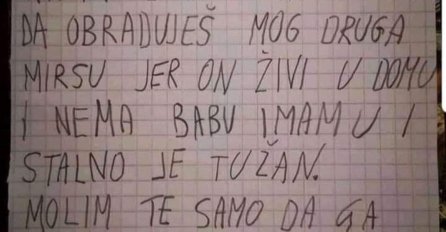 DA OBRADUJEŠ MOG DRUGA
MIRSU JER ON ŽIVI U DOMU
I NEMA BABU I MAMU I
STALNO JE TUŽAN.
MOLIM TE SAMO DA GA